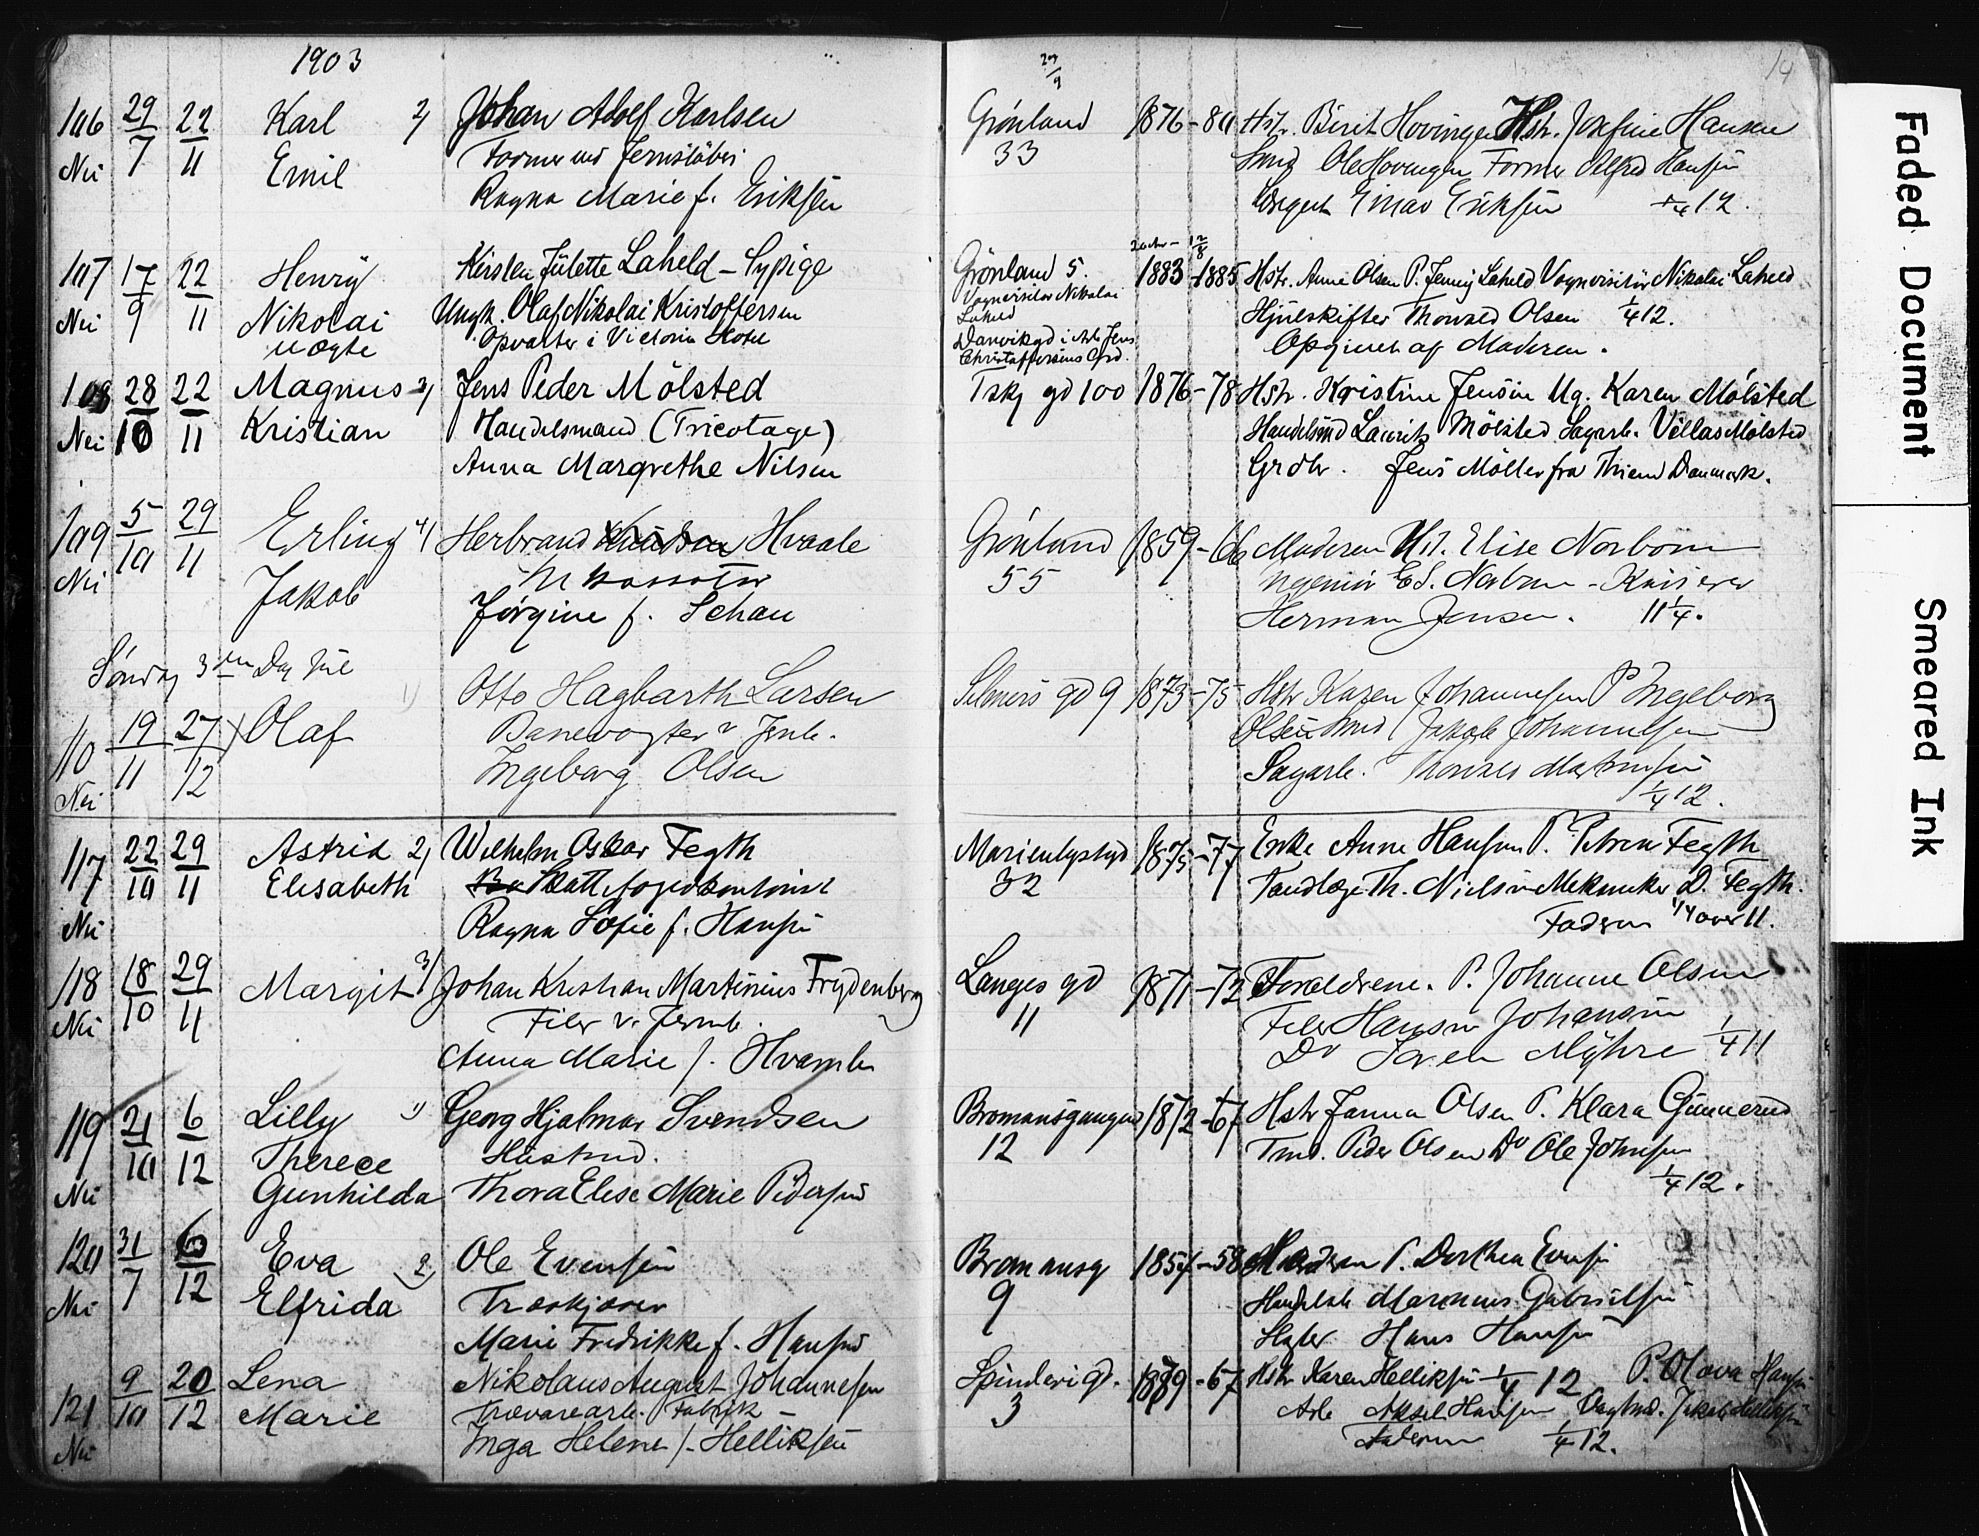 1903
29/9
14
106 29/7 22/11 Karl 2) Johan Adolf Karlsen Grønland 1876-80 Hstr. Berit Hovingen Hstr. Josefine Hansen
Nei Emil Former ved Jernstöberi 33 Smed Ole Hovengen Former Alfred Hansen
Ragna Marie f. Eriksen Einar Eriksen 1/4 12.
107 17/9 22/11 Henry Kirsten Julette Laheld - Sypige Grönland 5. 1883-1885 Hstr. Anne Olsen P. Jenny Laheld Vognvisitör Nikolai Laheld
Nei Nikolai Ungk. Olaf Nikolai Kristoffersen Vognvisitör Nikolai Laheld Hjulskifter Thorvald Olsen 1/4 12.
uægte Opvarter i Victoria Hotel Danvikgd i Arb. Jens Christoffersens Grd. Opgivet af Moderen.
108 28/10 22/11 Magnus 3) Jens Peder Mölsted Tskj gd 100 1876-78 Hstr. Kristine Jensen Ug. Karen Mölsted
Nei Kristian Handelsmand (Tricotage) Handelsmd Laurits Mölsted Sagarb. Villas Mölsted
Anna Margrethe Nilsen Grdbr. Jens Möller fra Danmark.
109 5/10 29/11 Erling 4) Herbrand Knudsen Hvaale Grønland 1859-66 Moderen Elise Norbom
Nei Jakob Inkassator 55 Ingeniør E. S. Norbom - Kasserer
Jørgine f. Schau Herman Jensen. 11 1/4.
Søndag 3den Dag Jul
110 19/11 27/12 Olaf 1) Otto Hagbarth Larsen Selmers gd 9 1873-75 Hstr Karen Johannesen P Ingeborg
Banevogter v Jrnb. Olsen Smed Jakob Johannesen
Nei Ingeborg Olsen Sagarb. Thorvald Martinsen
1/4 12.
117 22/10 29/11 Astrid 2) Wilhelm Oskar Fegth Marienlystgd 1875-77 Enke Anne Hansen P. Petrea Fegth
Elisabeth Skattefogedkontorist 32 Tandlæge Th. Nielsen Mekaniker D. Fegth.
Nei Ragna Sofie f. Hansen Faderen 1/4 over 11.
118 18/10 29/11 Margit 3) Johan Kristian Martinius Frydenberg Langes gd 1871-72 Forældrene. P. Johanne Olsen
Nei Filer v. Jernb. 11 Filer Hansen Johansen
Anna Marie f. Hvamb Do Soren Myhre 1/4 11
119 21/10 6/12 Lilly 1) Georg Hjalmar Svendsen Bromansgangen 1872-67 Hstr Janna Olsen P. Klara Gunnerud
Therece Husmd. 12 Tmd. Peder Olsen Do Ole Johnsen
Nei Gunhilda Thora Elise Marie Pedersen 1/4 12.
120 31/7 6/12 Eva 2) Ole Evensen Bromansg 1854-58 Moderen P. Dorthea Evensen
Nei Elfrida Træskjærer 9 Handelsb. Marenius Gabrielsen
Marie Fredrikke f. Hansen Hans Hansen
121 9/10 20/12 Lena Nikolaus August Johannesen Spinderigd. 1869-67 Hstr Karen Helliksen 1/4 12 P. Olava Hansen
Marie Trævarearb. Fabrik 3 Arb Aksel Hansen Vagtmd. Jakob Helliksen
Nei Inga Helene f. Helliksen Faderen 1/4 12.
Faded Document
Smeared Ink